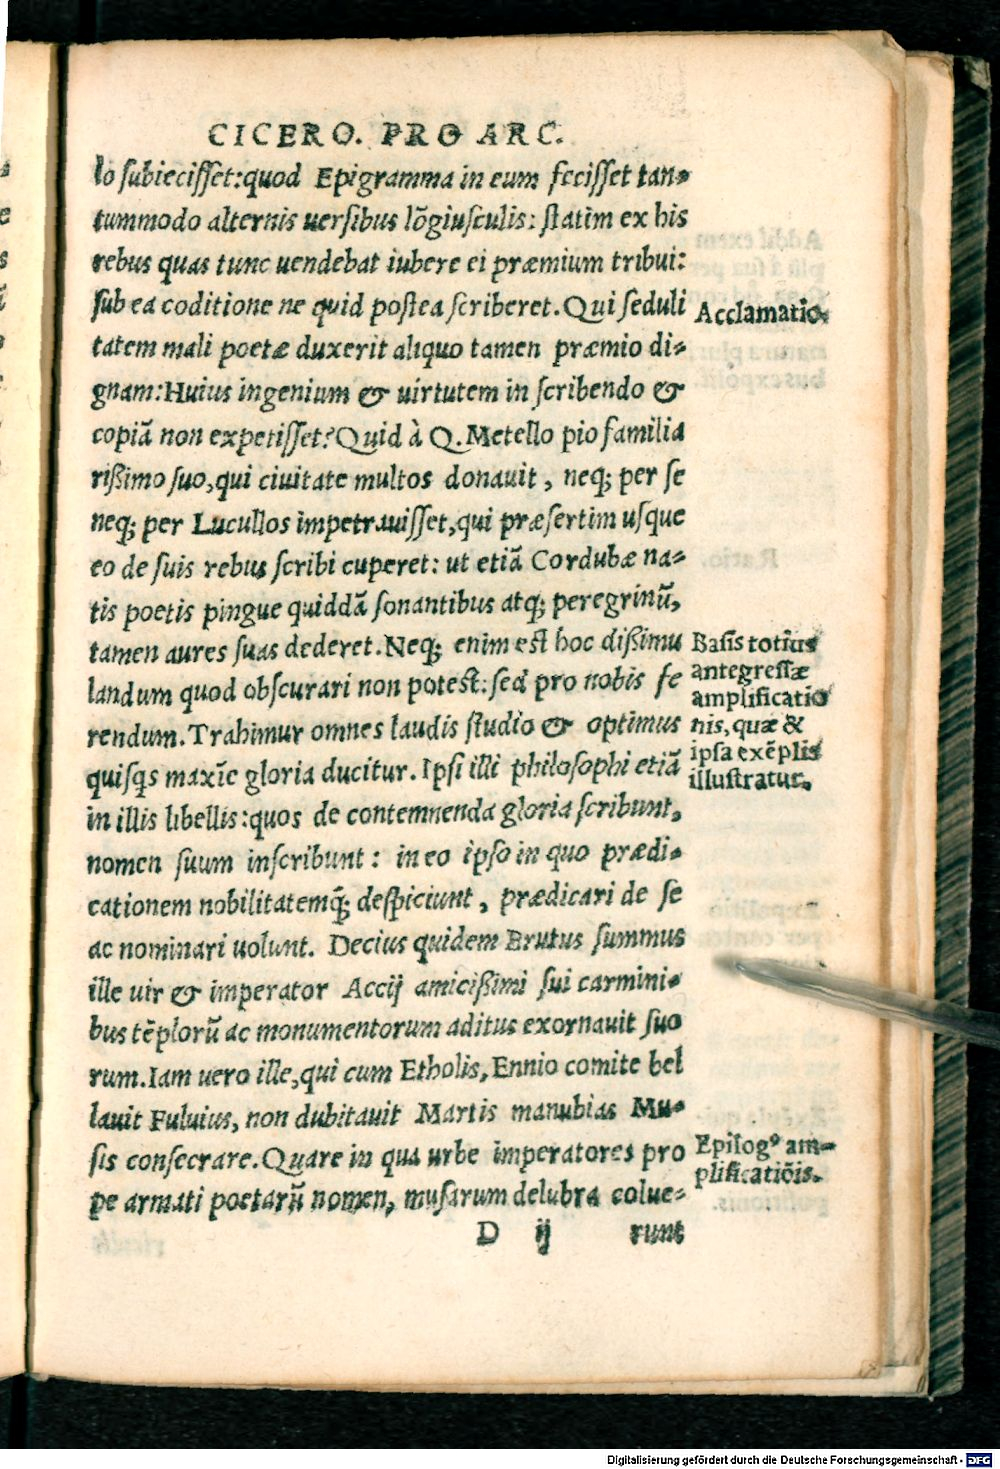 CICERO. PRO ARC.
lo subiecisset:quod Epigramma in eum fecisset tan-
tummodo alternis uersibus lõgiusculis: statim ex his
rebus quas tunc uendebat iubere ei præmium tribui:
sub ea coditione ne quid postea scriberet. Qui seduli
Acclamatio.
tatem mali poetæ duxerit aliquo tamen præmio di-
gnam:Huius ingenium & uirtutem in scribendo &
copiã non expetisset? Quid à Q. Metello pio familia
rißimo suo, qui ciuitate multos donauit, neq; per se
neq; per Lucullos impetrauisset, qui præsertim usque
eo de suis rebus scribi cuperet: ut etiã Cordubæ na-
tis poetis pingue quiddã sonantibus atq; peregrinũ,
tamen aures suas dederet. Neq; enim est hoc dißimu
landum quod obscurari non potest: sed pro nobis fe
rendum. Trahimur omnes laudis studio & optimus
quisqs maxĩe gloria ducitur. Ipsi illi philosophi etiã
Basis totius
antegressæ
amplificatio
nis, quæ &
ipsa exẽplis
illustratur.
in illis libellis:quos de contemnenda gloria scribunt,
nomen suum inscribunt: in eo ipso in quo prædi-
cationem nobilitatemq̃; despiciunt, prædicari de se
ac nominari uolunt. Decius quidem Brutus summus
ille uir & imperator Accij amicißimi sui carmini-
bus tẽplorũ ac monumentorum aditus exornauit suo
rum. Iam uero ille, qui cum Etholis, Ennio comite bel
lauit Fuluius, non dubitauit Martis manubias Mu-
sis consecrare. Quare in qua urbe imperatores pro
pe armati poetarũ nomen, musarum delubra colue-
Epilogꝰ am-
plificatiõis.
D ij runt
Digitalisierung gefördert durch die Deutsche Forschungsgemeinschaft - DFG